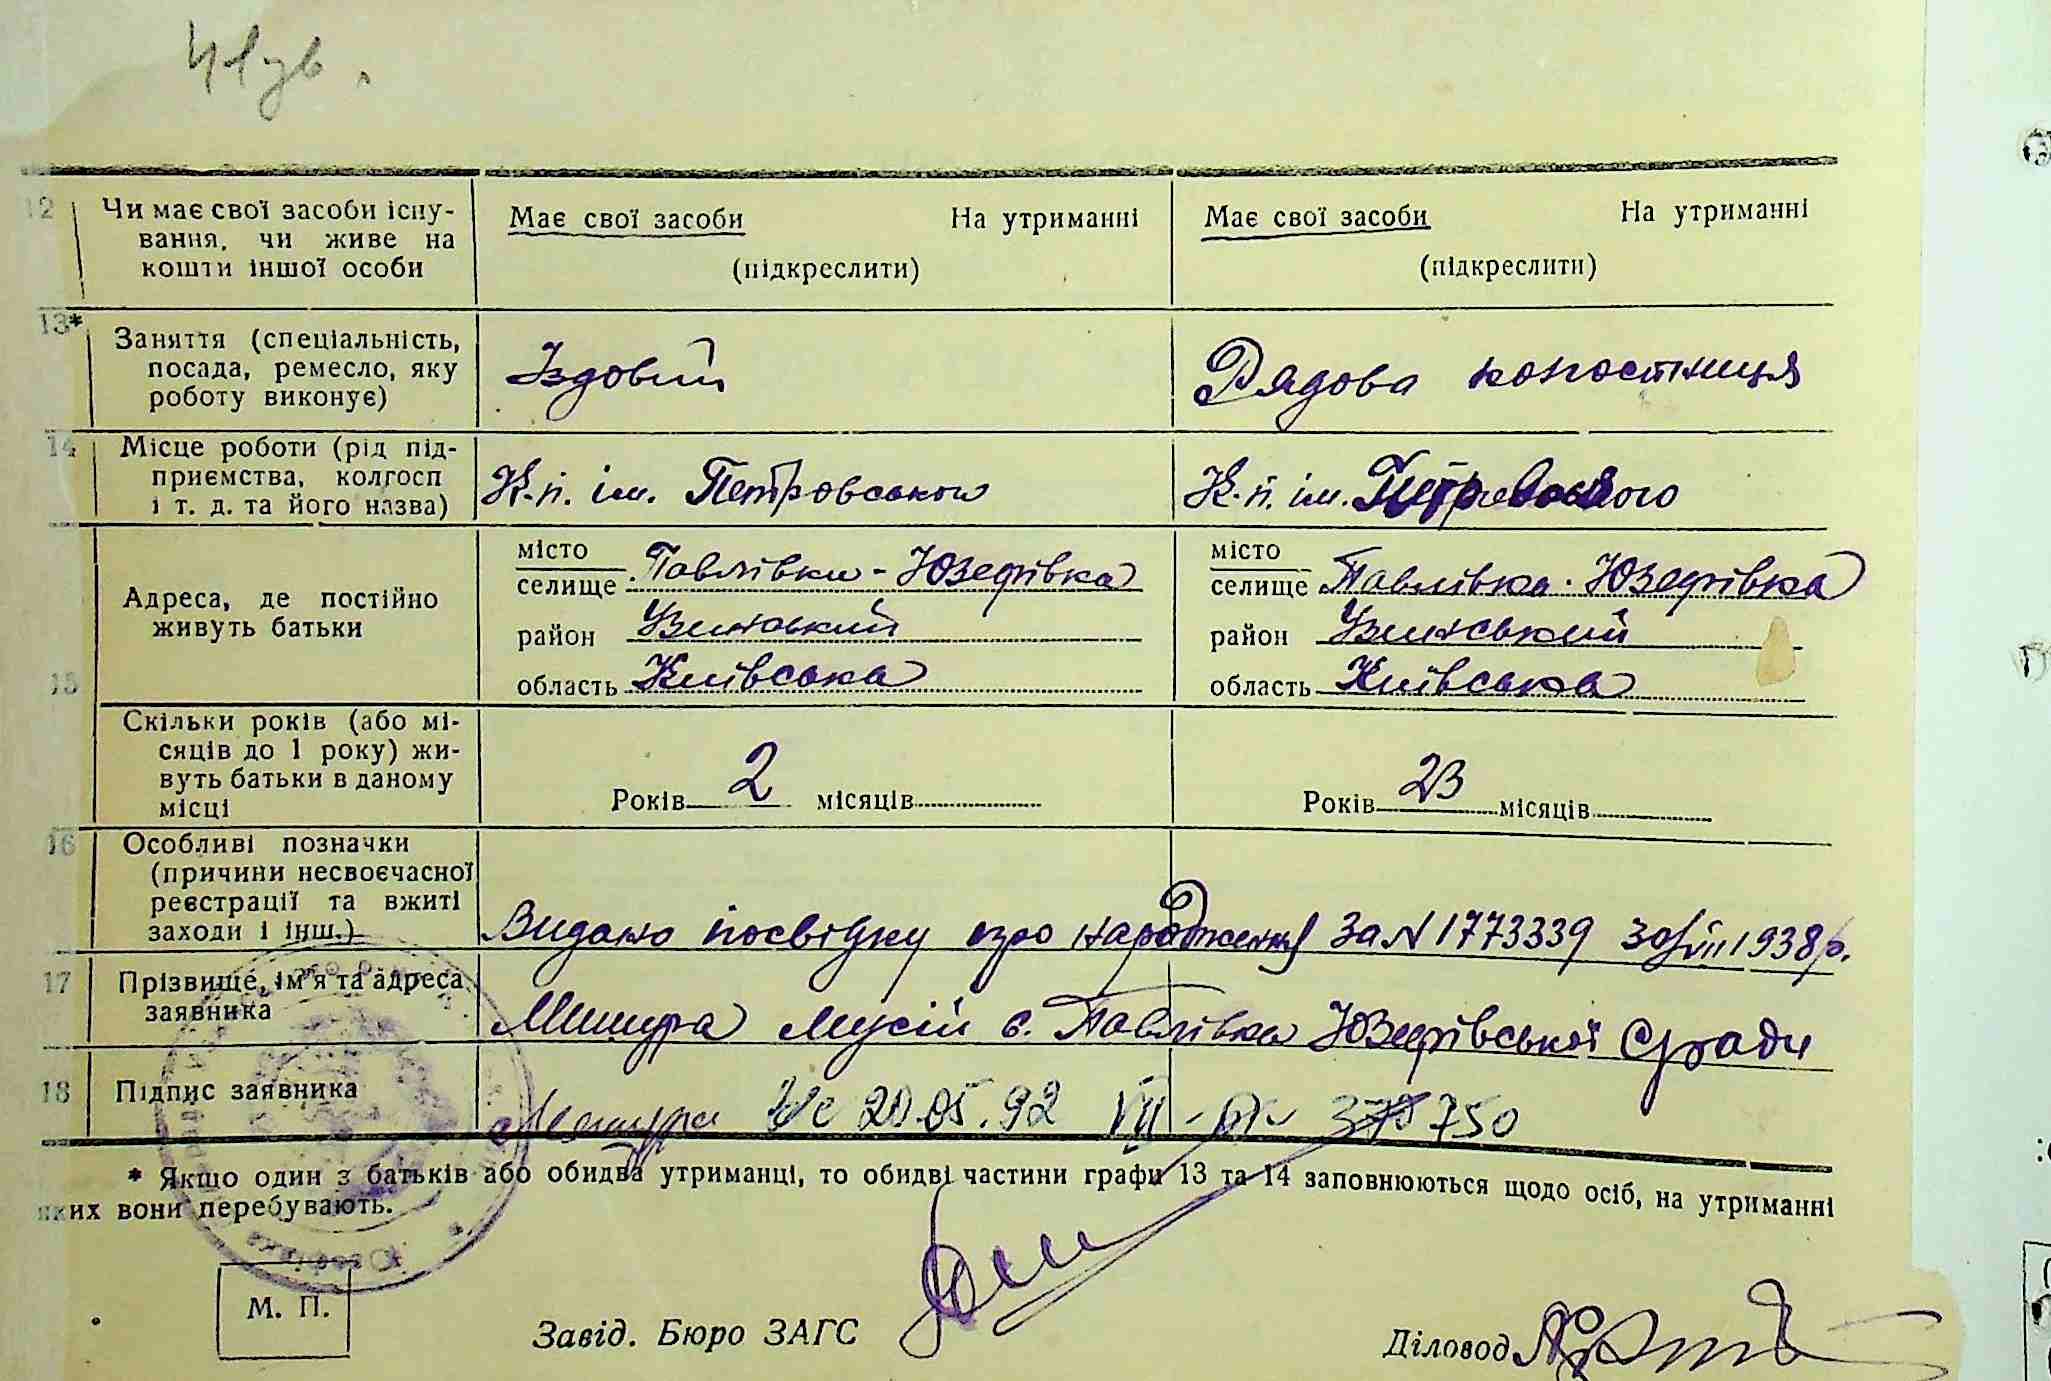 12 Чи має свої засоби існу-
вання, чи живе на
кошти іншої особи
Має свої засоби На утриманні
(підкреслити)
Має свої засоби На утриманні
(підкреслити)
13* Заняття (спеціальність,
посада, ремесло, яку
роботу виконує)
Їздовий
Рядова колгостниця
14 Місце роботи (рід під-
приємства, колгосп
і т. д. та його назва)
К-п. ім. Петровського
К-п. ім. Петровського
15 Адреса, де постійно
живуть батьки
місто
селище Павлівка-Юзефівка
район Узинський
область Київська
місто
селище Павлівка-Юзефівка
район Узинський
область Київська
Скільки років (або мі-
сяців до 1 року) жи-
вуть батьки в даному
місці
Років 2 місяців
Років 23 місяців
16 Особливі позначки
(причини несвоєчасної
реєстрації та вжиті
заходи і інш.)
Видано посвідку про народження за N 1773339 30/VIII 1938 р.
17 Прізвище, ім'я та адреса
заявника
Мишура Мусій с. Павлівка Юзефівської с/ради
18 Підпис заявника
Мишура 20.05.92 VII 750
* Якщо один з батьків або обидва утриманці, то обидві частини графи 13 та 14 заповнюються щодо осіб, на утриманні
яких вони перебувають.
М. П.
Завід. Бюро ЗАГС
Діловод